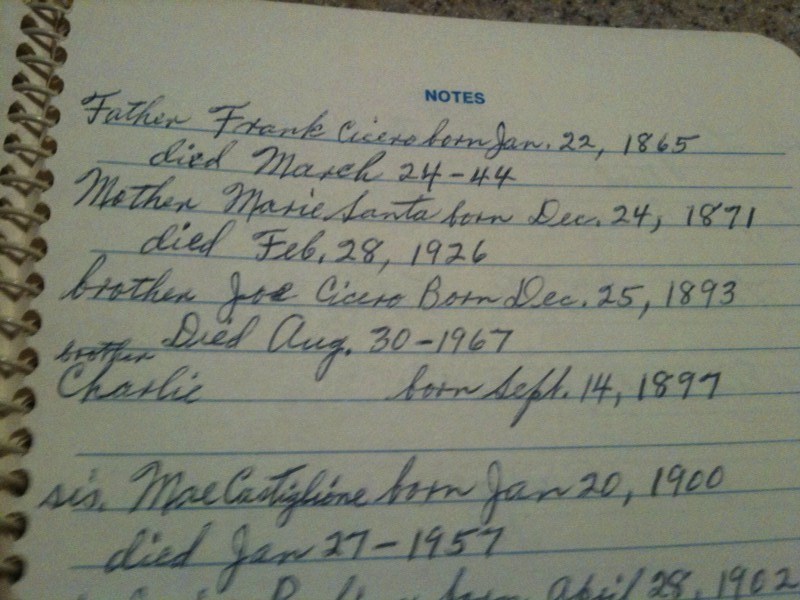 NOTES
Father Frank Cicero born Jan. 22, 1865
died March 24-44
Mother Marie Santa born Dec. 24, 1871
died Feb. 28, 1926
brother Joe Cicero Born Dec. 25, 1893
Died Aug. 30-1967
brother
Charlie born Sept. 14, 1897
sis. Mae Castiglione born Jan 20, 1900
died Jan 27-1957
born April 28, 1902